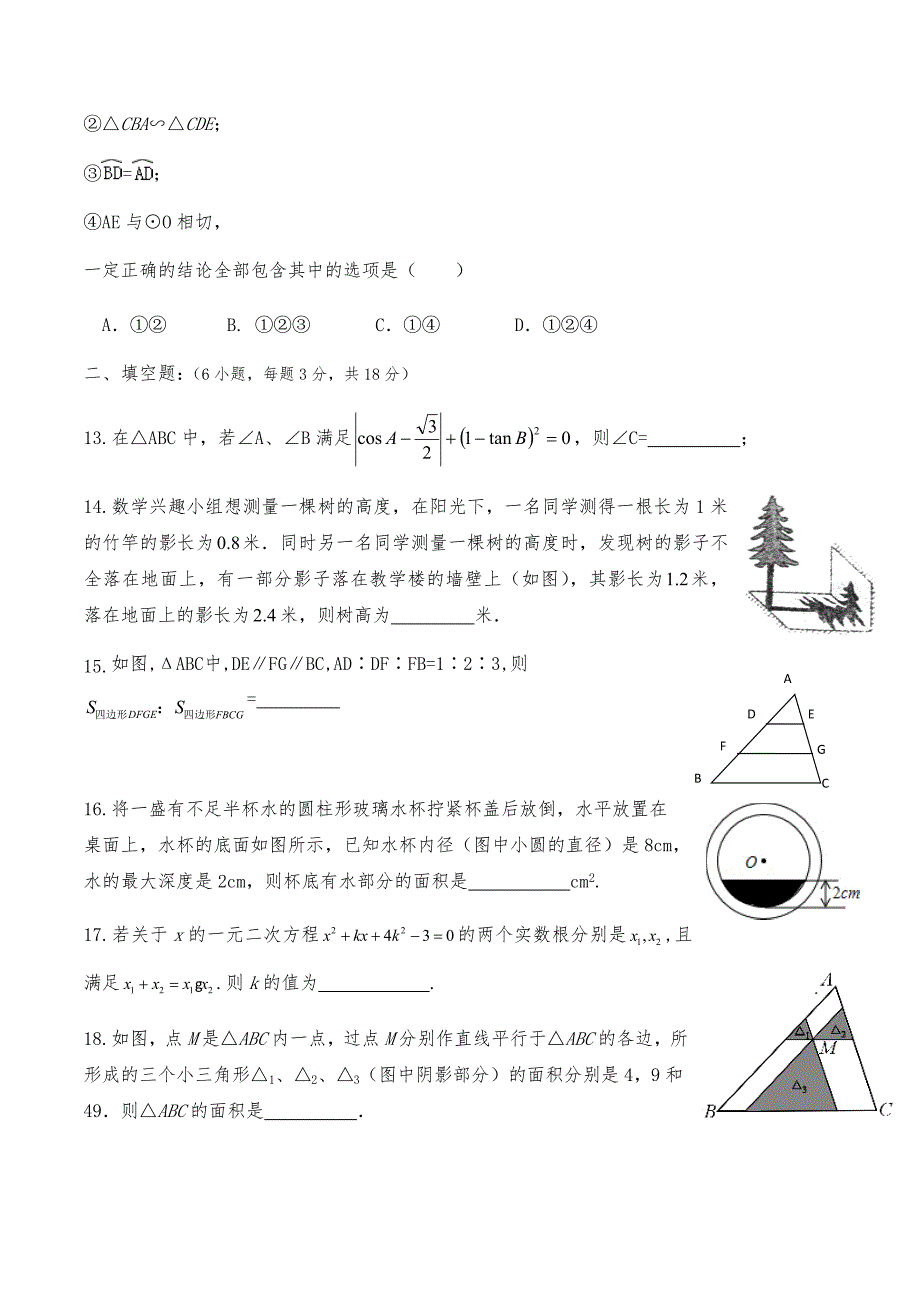 ②△CBA∽△CDE;
③BD=AD;
④AE与⊙O相切,
一定正确的结论全部包含其中的选项是(  )
A.①② B. ①②③ C.①④ D.①②④
二、填空题:(6小题,每题3分,共18分)
13.在△ABC中,若∠A、∠B满足|cos A − √3/2| + (1 − tan B)² = 0,则∠C=__________;
14.数学兴趣小组想测量一棵树的高度,在阳光下,一名同学测得一根长为1米
的竹竿的影长为0.8米.同时另一名同学测量一棵树的高度时,发现树的影子不
全落在地面上,有一部分影子落在教学楼的墙壁上(如图),其影长为1.2米,
落在地面上的影长为2.4米,则树高为_________米.
15.如图,ΔABC中,DE∥FG∥BC,AD∶DF∶FB=1∶2∶3,则
S四边形DFGE:S四边形FBCG=_________
A
D E
F G
B C
16.将一盛有不足半杯水的圆柱形玻璃水杯拧紧杯盖后放倒,水平放置在
桌面上,水杯的底面如图所示,已知水杯内径(图中小圆的直径)是8cm,
水的最大深度是2cm,则杯底有水部分的面积是___________cm².
O
2cm
17.若关于x的一元二次方程x²+kx+4k²−3=0的两个实数根分别是x₁,x₂,且
满足x₁+x₂=x₁gx₂.则k的值为____________.
18.如图,点M是△ABC内一点,过点M分别作直线平行于△ABC的各边,所
形成的三个小三角形△₁、△₂、△₃(图中阴影部分)的面积分别是4,9和
49.则△ABC的面积是__________.
A
△₁ △₂
M
△₃
B C